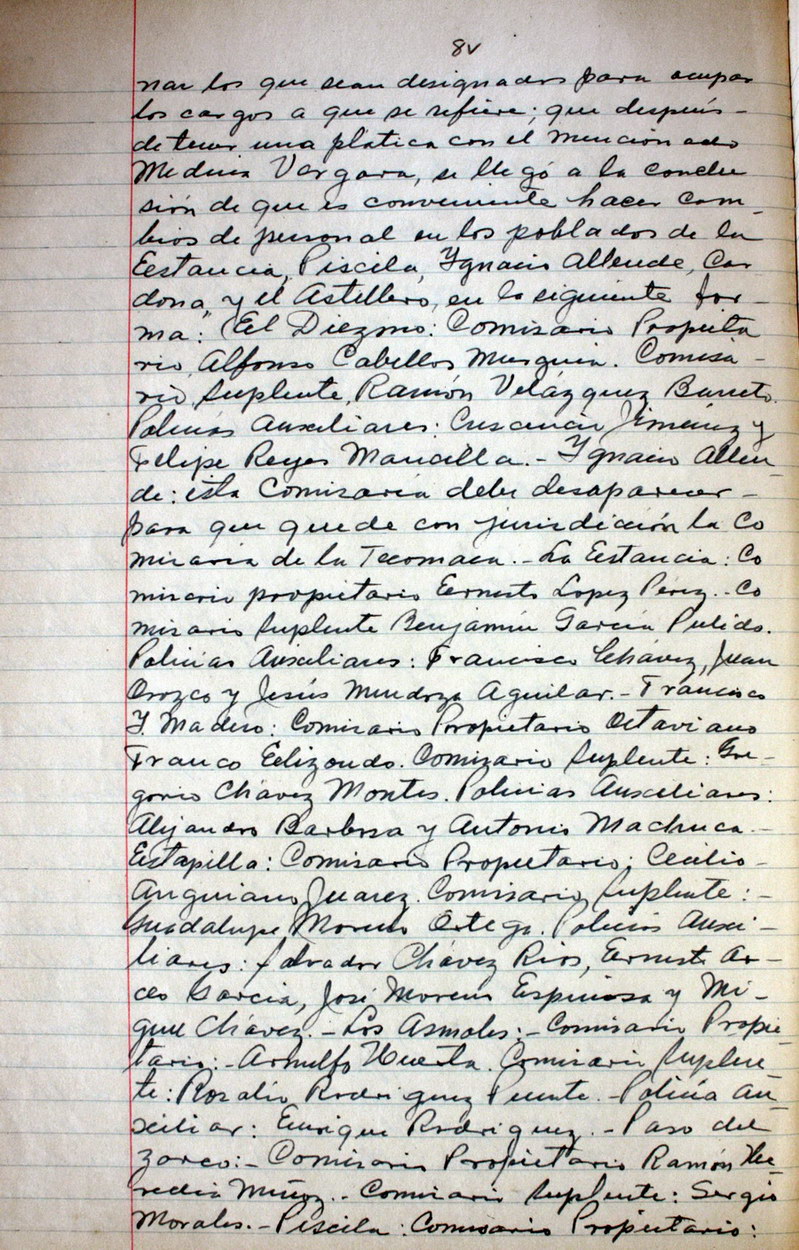 8v
nar los que sean designados para ocupar
los cargos a que se refiere; que después-
de tener una platica con el mencionado
Medina Vergara, se llegó a la conclu
sión de que es conveniente hacer cam-
bios de personal en los poblados de la
Estancia, Piscila, Ygnacio Allende, Car
dona, y el Astillero, en la siguiente for-
ma: El Diezmo: Comisario Propieta
rio, Alfonso Cabellos Munguia. Comisa-
rio Suplente, Ramón Velázquez Barreto.
Policías Auxiliares: Crescencio Jiménez y
Felipe Reyes Mancilla.- Ygnacio Allen
de: esta Comisaría debe desaparecer-
para que quede con jurisdicción la Co
misaria de la Tecomaca.- La Estancia: Co
misario propietario Ernesto Lopez Pérez.- Co
misario Suplente Benjamín García Pulido.
Policías Auxiliares: Francisco Chávez, Juan
Orozco y Jesús Mendoza Aguilar.- Francisco
Y. Madero: Comisario Propietario Octaviano
Franco Elizondo. Comisario Suplente: Gre-
gorio Chávez Montes. Policias Auxiliares:
Alejandro Barbosa y Antonio Machuca.-
Estapilla: Comisario Propietario; Cecilio-
Anguiano Juarez. Comisario Suplente:-
Guadalupe Moreno Ortega. Policías Auxi-
liares: Salvador Chávez Rios, Ernesto Ar-
ceo Garcia, José Moreno Espinosa y Mi-
guel Chávez.- Los Asmoles:- Comisario Propie
tario:- Arnulfo Huerta. Comisario Suplen
te: Rosalío Rodriguez Puente.- Policía Au
xiliar: Enrique Rodriguez.- Paso del
zarco:- Comisario Propietario Ramón He
redia Muñoz.- Comisario Suplente: Sergio
Morales.- Piscila: Comisario Propietario: